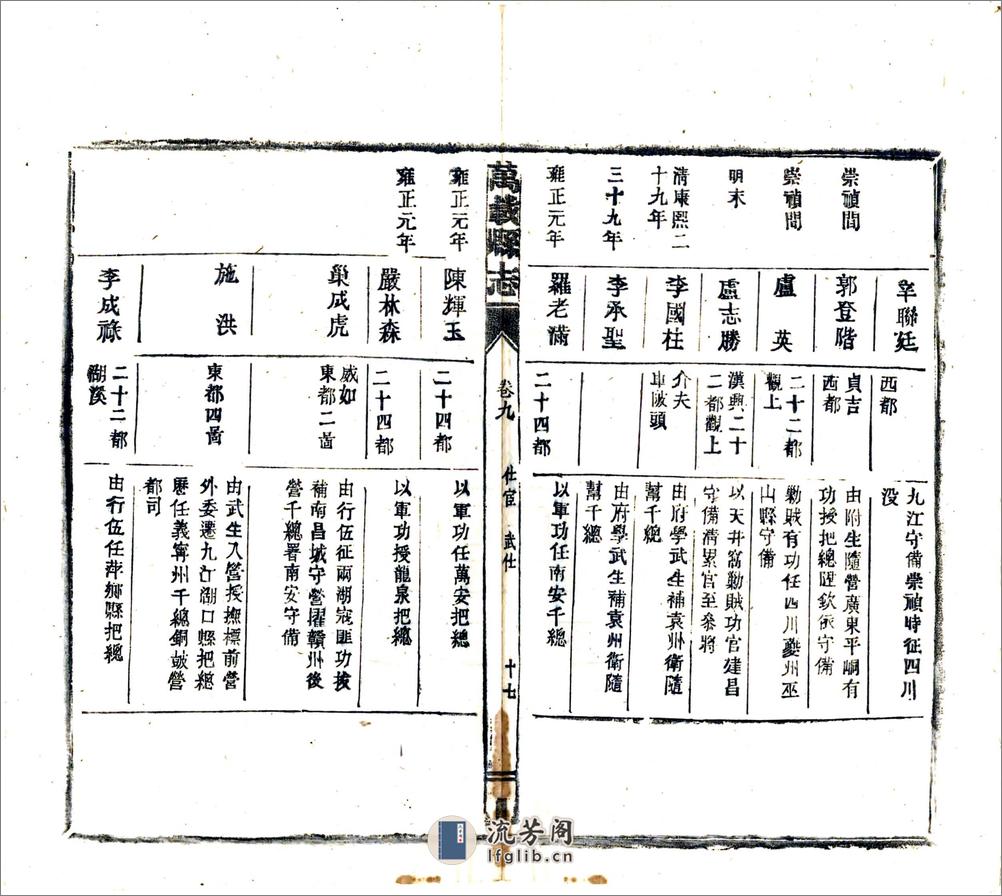 辛聯廷
西都
九江守備崇禎時征四川
没
崇禎間
郭登階
貞吉
西都
由附生隨營廣東平峒有
功授把總陞欽依守備
崇禎間
盧英
二十二都
觀上
勦賊有功任四川夔州巫
山縣守備
明末
盧志勝
漢興二十
二都觀上
以天井窩勦賊功官建昌
守備清累官至參將
清康熙二
十九年
李國柱
介夫
車陂頭
由府學武生補袁州衛隨
幫千總
三十九年
李承聖
由府學武生補袁州衛隨
幫千總
雍正元年
羅老滿
二十四都
以軍功任南安千總
萬載縣志
卷九
仕宦 武仕
十七
雍正元年
陳輝玉
二十四都
以軍功任萬安把總
雍正元年
嚴林森
二十四都
以軍功授龍泉把總
巢成虎
威如
東都二啚
由行伍征兩湖寇匪功拔
補南昌城守營擢贛州後
營千總署南安守備
施洪
東都四啚
由武生入營授撫標前營
外委遷九江湖口縣把總
歷任義寧州千總銅鼓營
都司
李成祿
二十二都
湖溪
由行伍任萍鄉縣把總
流芳阁
lfglib.cn